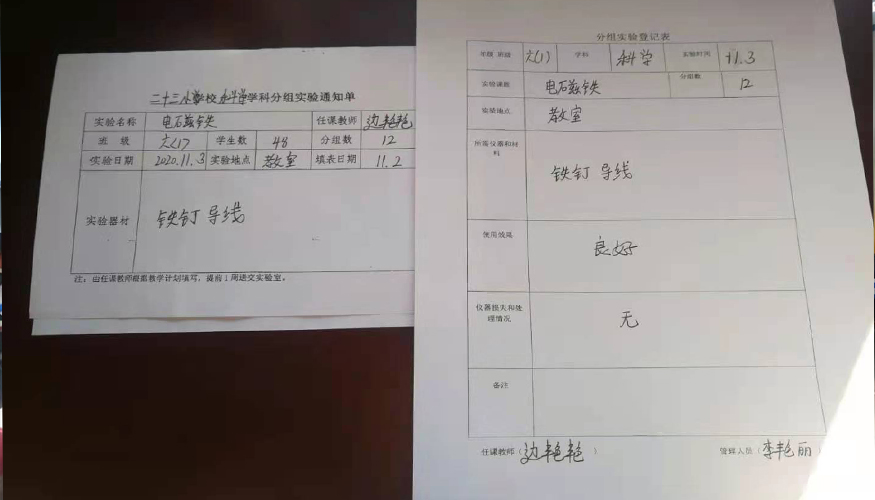 二十三小学校科学学科分组实验通知单
实验名称 电磁铁 任课教师 边艳艳
班 级 六(1) 学生数 48 分组数 12
实验日期 2020.11.3 实验地点 教室 填表日期 11.2
实验器材 铁钉 导线
注：由任课教师根据教学计划填写，提前1周送交实验室。
分组实验登记表
年级 班级 六(1) 学科 科学 实验时间 11.3
实验课题 电磁铁 分组数 12
实验地点 教室
所需仪器和材料 铁钉 导线
使用效果 良好
仪器损失和处理情况 无
备注
任课教师（边艳艳） 管理人员（李艳丽）